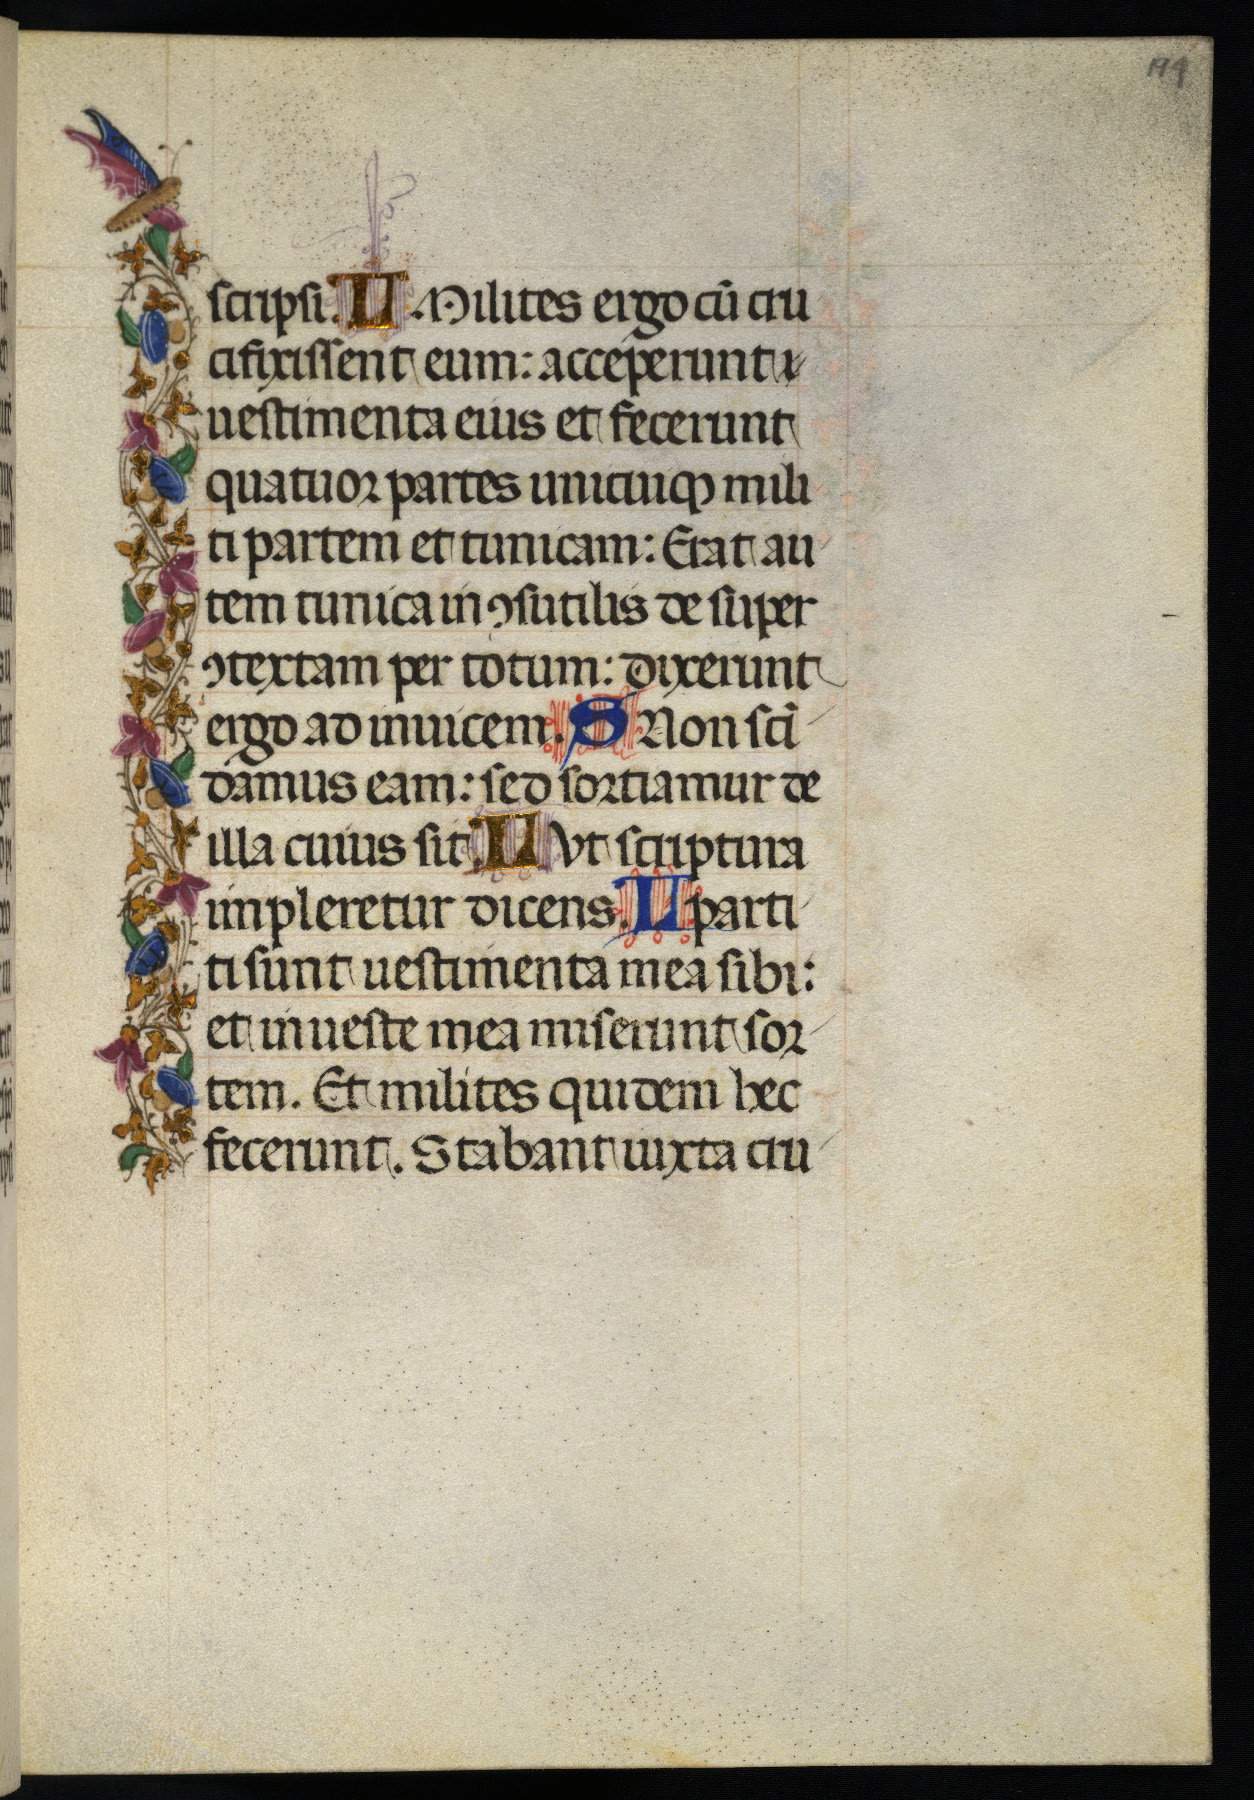 194
scripsi. L Milites ergo cū cru
cifixissent eum: acceperunt
uestimenta eius et fecerunt
quatuor partes unicuiqꝫ mili
ti partem et tunicam: Erat au
tem tunica in ꝯsutilis de super
ꝯtextam per totum: dixerunt
ergo ad inuicem. S Non sci
damus eam: sed sortiamur de
illa cuius sit. L Vt scriptura
impleretur dicens. L parti
ti sunt uestimenta mea sibi:
et in ueste mea miserunt sor
tem. Et milites quidem hec
fecerunt. Stabant iuxta cru